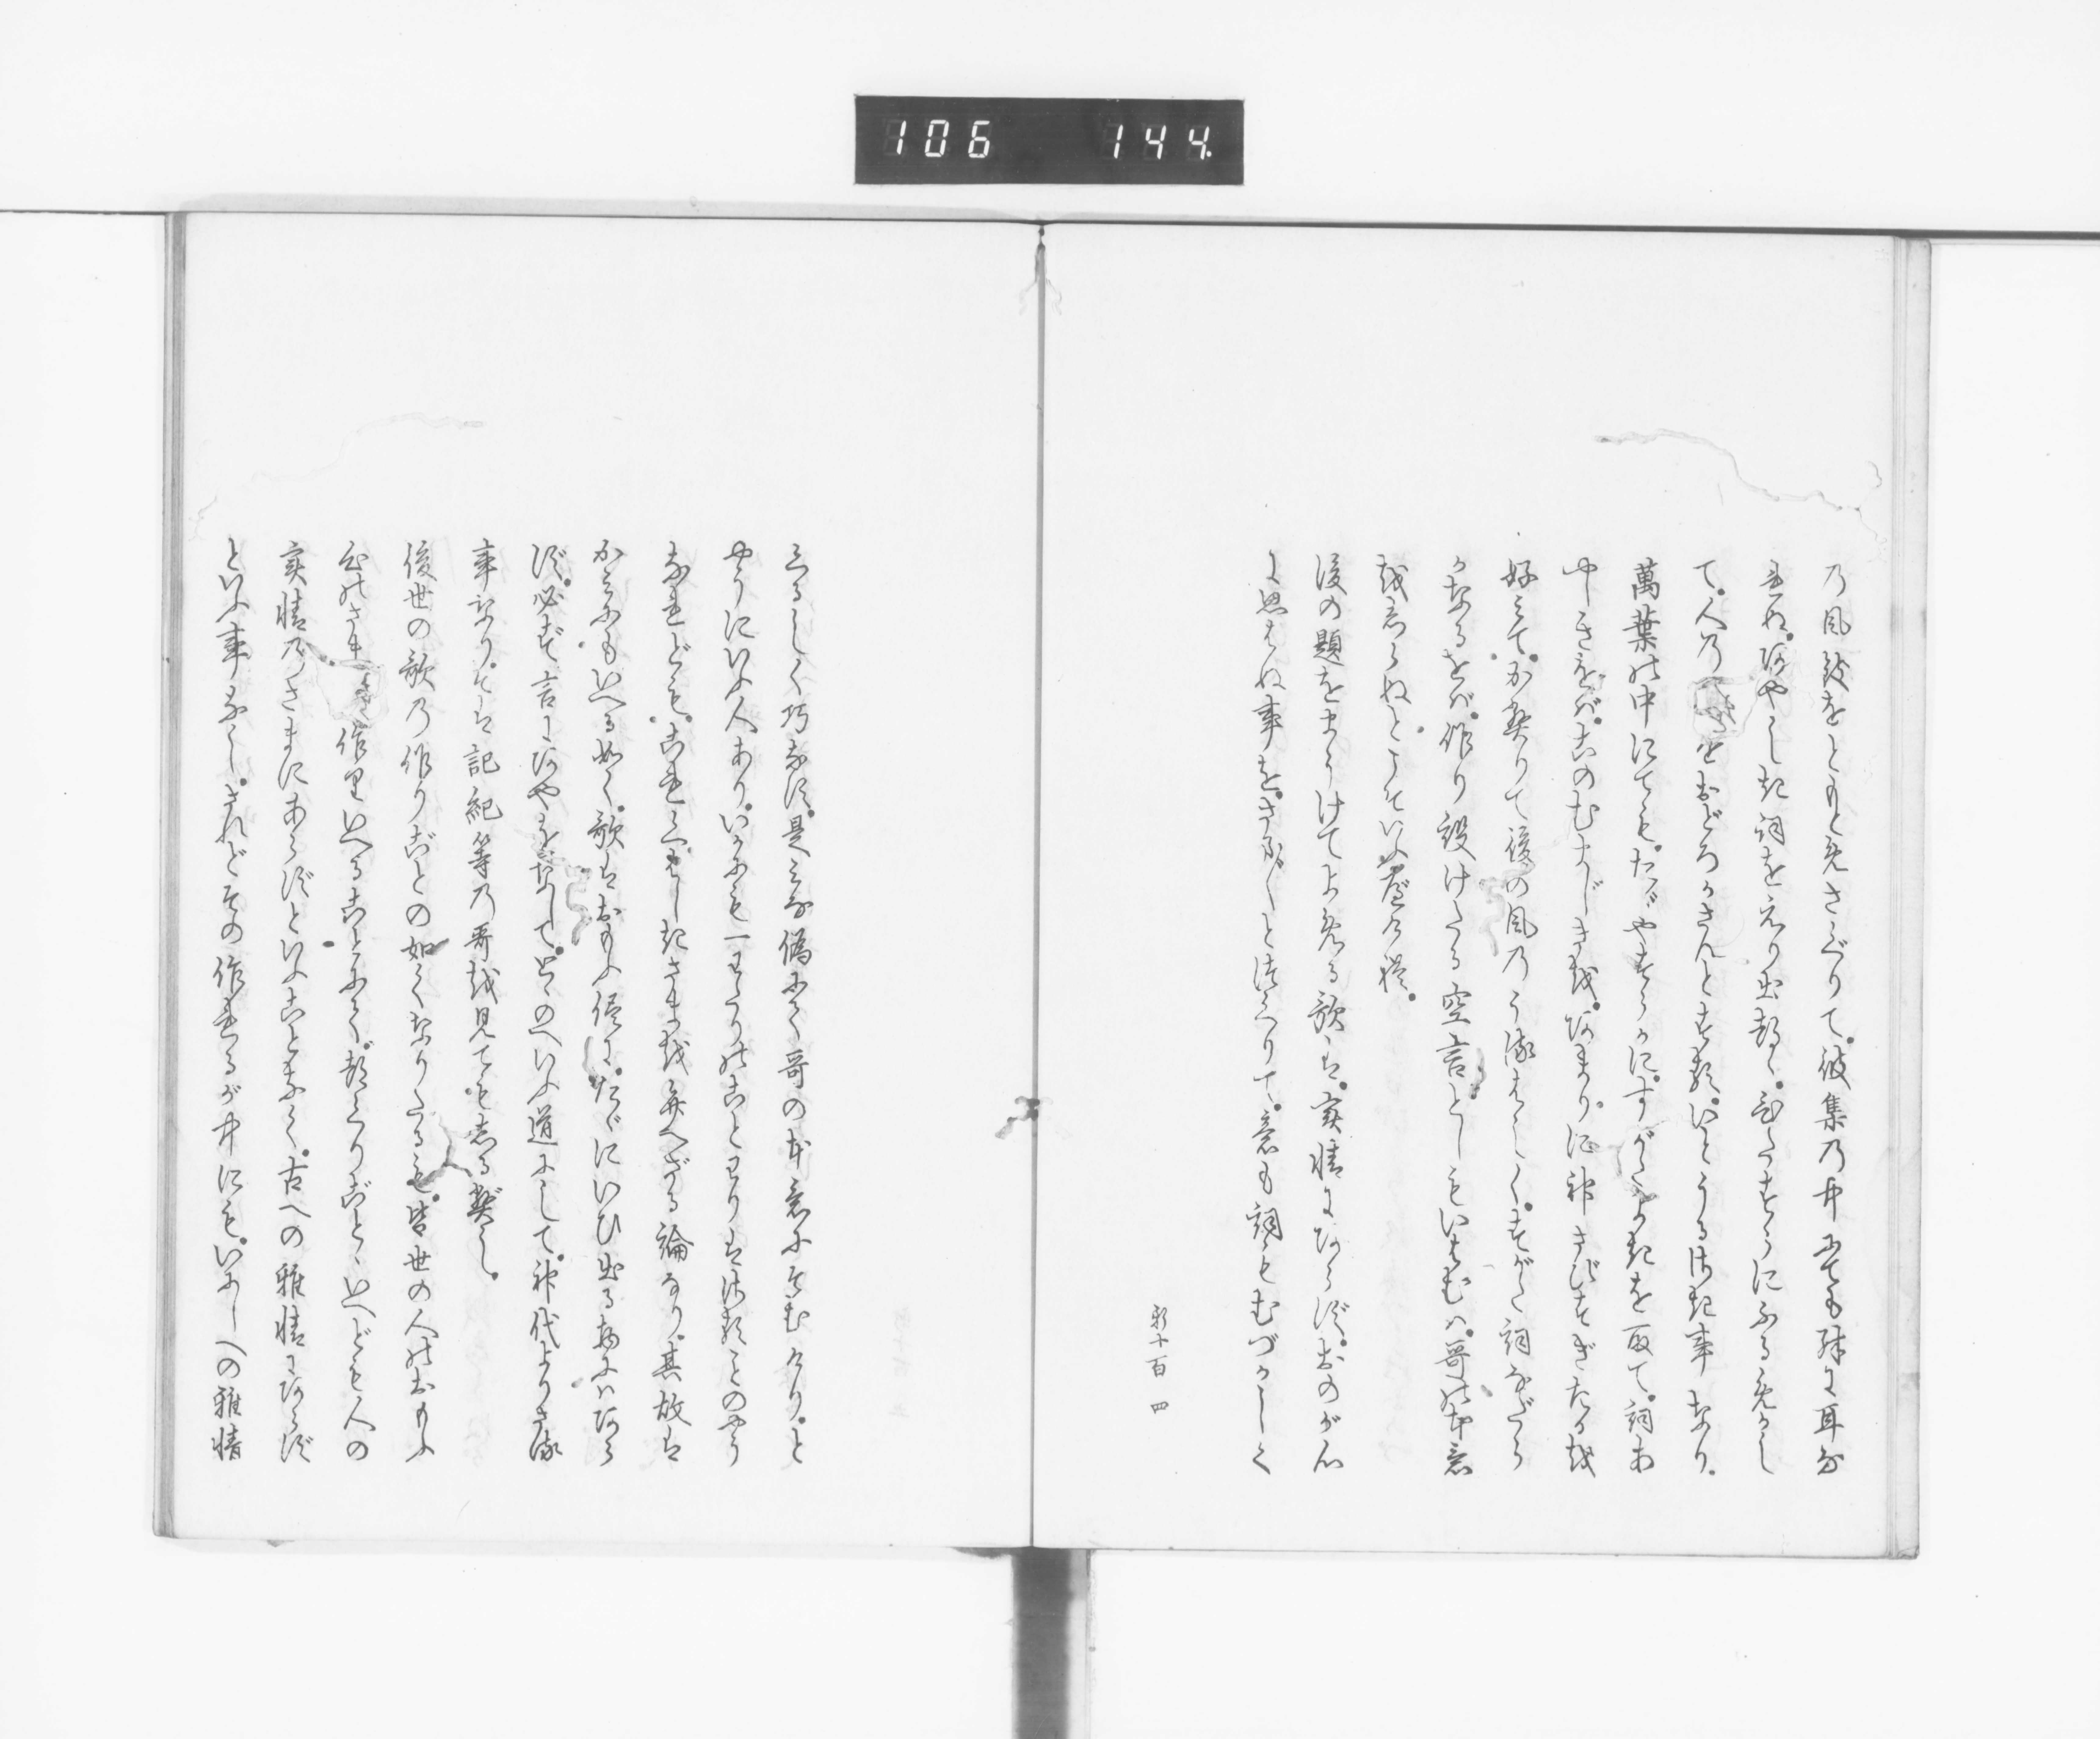 106 144
乃風致をともとめさぐりて。彼集乃中にても殊に耳な
れぬ。あやしき詞をえり出つゝ。ひたすらにふるめかし
て。人乃をおどろかさんとする。いとうるさき事なり。
萬葉の中にても。たゞやすらかに。すがたよきを取て。詞あ
やしきをば。このむまじきを。あまり神さびすぎたるを
好みて。かへりて後の風乃うるはしく。すがた詞なだら
かなるをば。作り設けたる空言としもいはむハ。哥の本意
をしらぬとこそいふべけれ。
後の題をまうけてよめる歌は。実情にあらず。おのが心
に思はぬ事を。さま〴〵とつくりて。意も詞もむづかしく
新十百四
くるしく巧なす。是みな偽にて哥の本意にそむけり。と
やうにいふ人あり。いかにも一わたりのことわりはさることのやう
なれども。これくはしきさまを弁へざる論なり。其故は
かみにもいへる如く。歌はおもふ侭に。たゞにいひ出る物にハあら
ず。必ず言にあやをなして。とゝのへいふ道にして。神代よりさる
事なり。そは記紀等乃哥を見てもしるべし。
後世の歌乃作りごとの如くなりたるも。皆世の人のおもふ
心のさま作りいへることにて。つくりごとゝいへども人の
実情乃さまにあらずといふことなく。古への雅情にあらず
といふ事なし。されどその作れるが中にも。いにしへの雅情